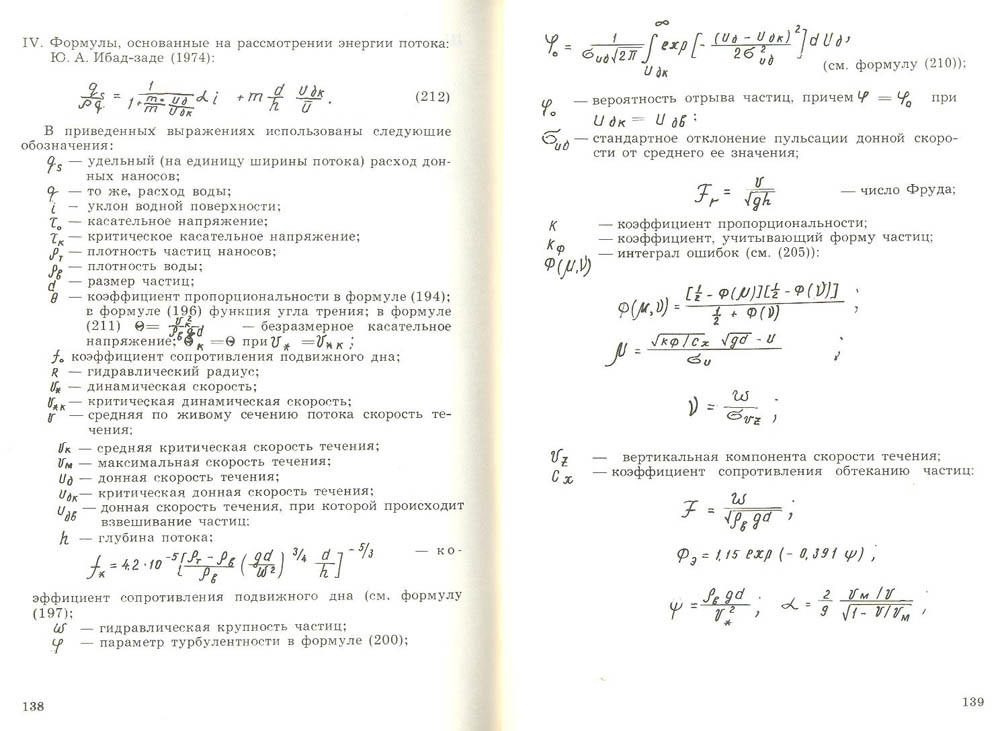 IV. Формулы, основанные на рассмотрении энергии потока:
Ю. А. Ибад-заде (1974):
(212)
В приведенных выражениях использованы следующие
обозначения:
q_s — удельный (на единицу ширины потока) расход дон-
ных наносов;
q — то же, расход воды;
i — уклон водной поверхности;
τ_o — касательное напряжение;
τ_к — критическое касательное напряжение;
ρ_т — плотность частиц наносов;
ρ_в — плотность воды;
d — размер частиц;
θ — коэффициент пропорциональности в формуле (194);
в формуле (196) функция угла трения; в формуле
(211) Θ= — безразмерное касательное
напряжение; Θ_к =Θ при 𝒱_* =𝒱_*к ;
f_o коэффициент сопротивления подвижного дна;
R — гидравлический радиус;
𝒱_* — динамическая скорость;
𝒱_*к — критическая динамическая скорость;
𝒱 — средняя по живому сечению потока скорость те-
чения;
𝒱_к — средняя критическая скорость течения;
𝒱_м — максимальная скорость течения;
U_д — донная скорость течения;
U_дк — критическая донная скорость течения;
U_дв — донная скорость течения, при которой происходит
взвешивание частиц;
h — глубина потока;
f_к = 4.2·10^-5 [(ρ_т - ρ_в)/ρ_в (gd/ω²)^3/4 d/h]^-5/3 — ко-
эффициент сопротивления подвижного дна (см. формулу
(197);
ω — гидравлическая крупность частиц;
φ — параметр турбулентности в формуле (200);
138
φ_o = 1/(σ_uд√2π) ∫_{U_дк}^∞ exp[-(U_д - U_дк)²/2σ²_uд] dU_д,
(см. формулу (210));
φ_o — вероятность отрыва частиц, причем φ = φ_o при
U_дк = U_дв :
σ_uд — стандартное отклонение пульсации донной скоро-
сти от среднего ее значения;
F_r = 𝒱/√gh — число Фруда;
K — коэффициент пропорциональности;
K_ф — коэффициент, учитывающий форму частиц;
Φ(μ,ν) — интеграл ошибок (см. (205)):
Φ(μ,ν) = [1/2 - Φ(μ)][1/2 - Φ(ν)] / (1/2 + Φ(ν)) ;
μ = (√kф/Cx √gd - u)/σ_u ;
ν = ω/σ_vz ;
𝒱_z — вертикальная компонента скорости течения;
C_x — коэффициент сопротивления обтеканию частиц:
F = ω/√ρ_в gd ;
Φ_э = 1,15 exp (- 0,391 ψ) ;
ψ = ρ_в gd/𝒱_*² , α = 2/9 𝒱_м/𝒱/√1- 𝒱/𝒱_м ,
139